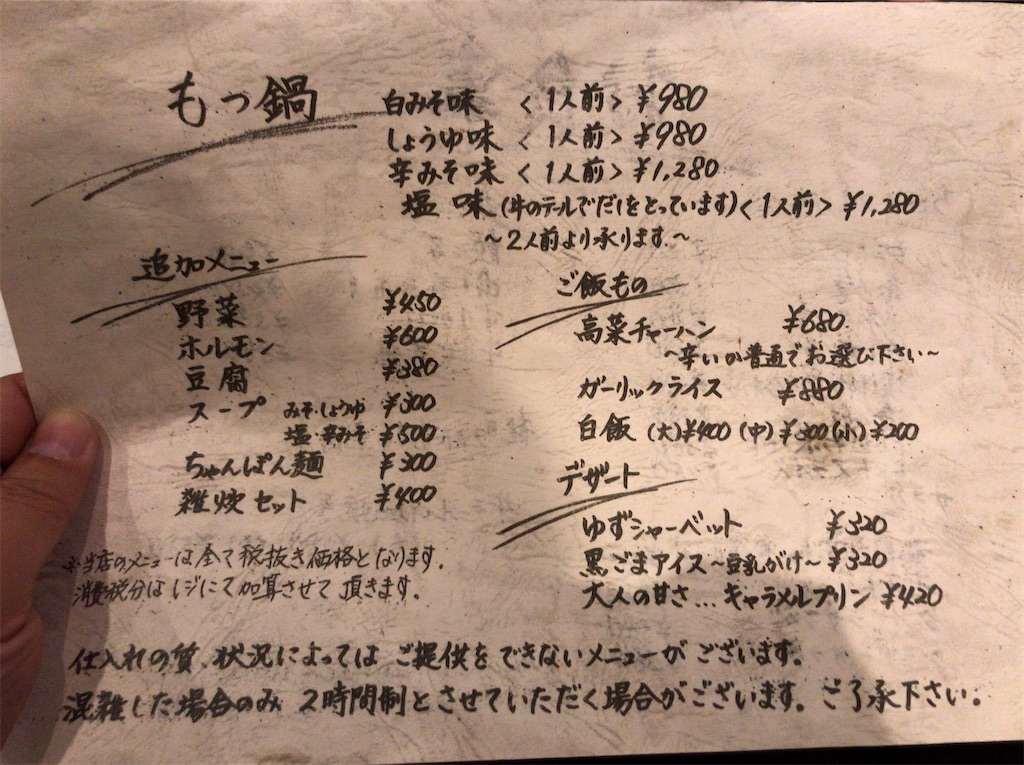 もつ鍋
白みそ味 <1人前> ¥980
しょうゆ味 <1人前> ¥980
辛みそ味 <1人前> ¥1,280
塩味 (牛のテールでだしをとっています) <1人前> ¥1,280
~2人前より承ります.~
追加メニュー
野菜 ¥450
ホルモン ¥600
豆腐 ¥380
スープ みそ・しょうゆ ¥300
塩・辛みそ ¥500
ちゃんぽん麺 ¥300
雑炊セット ¥400
※当店のメニューは全て税抜き価格となります.
消費税分はレジにて加算させて頂きます.
ご飯もの
高菜チャーハン ¥680
~辛いか普通でお選び下さい~
ガーリックライス ¥880
白飯 (大)¥400 (中)¥300 (小)¥200
デザート
ゆずシャーベット ¥320
黒ごまアイス~豆乳がけ~ ¥320
大人の甘さ...キャラメルプリン ¥420
仕入れの質、状況によっては ご提供をできないメニューがございます。
混雑した場合のみ 2時間制とさせていただく場合がございます。ご了承下さい。